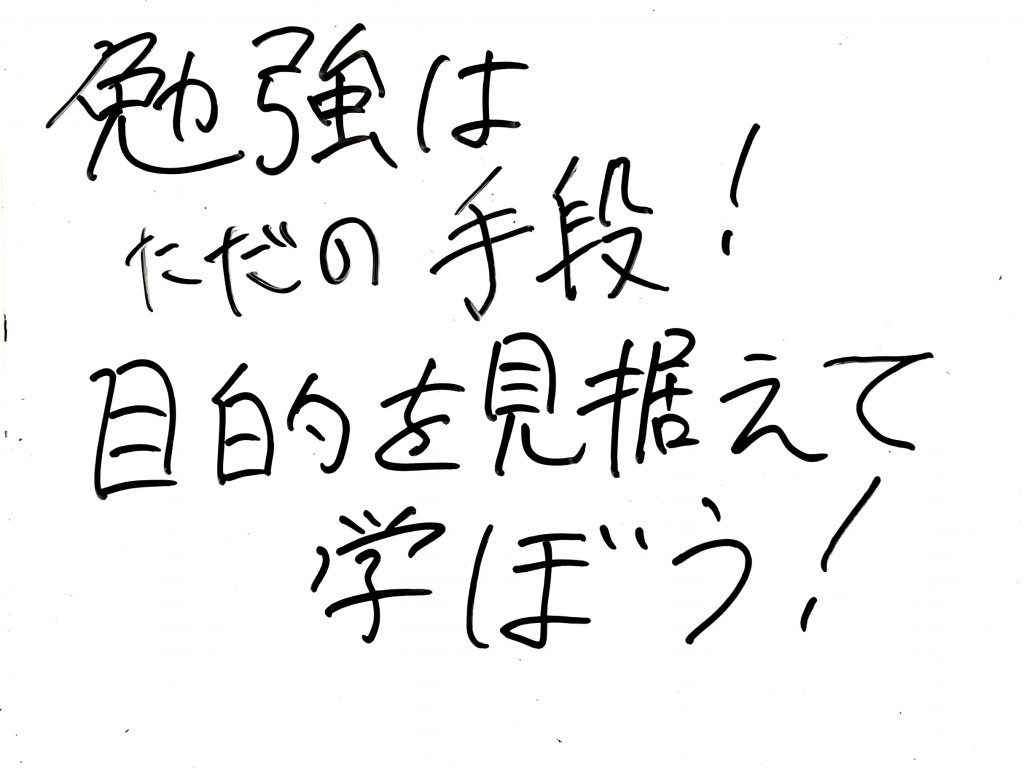 勉強は
ただの手段!
目的を見据えて
学ぼう!